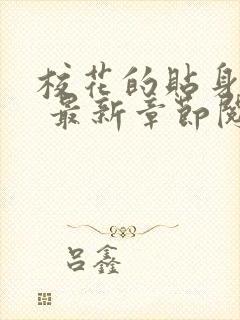 校花的贴身
最新章节阅
吕鑫